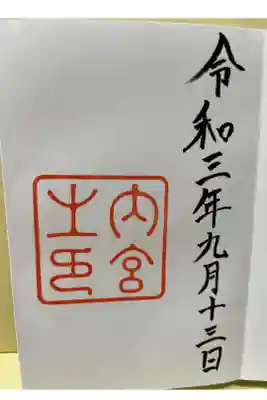 令和三年九月十三日
内宮
之印